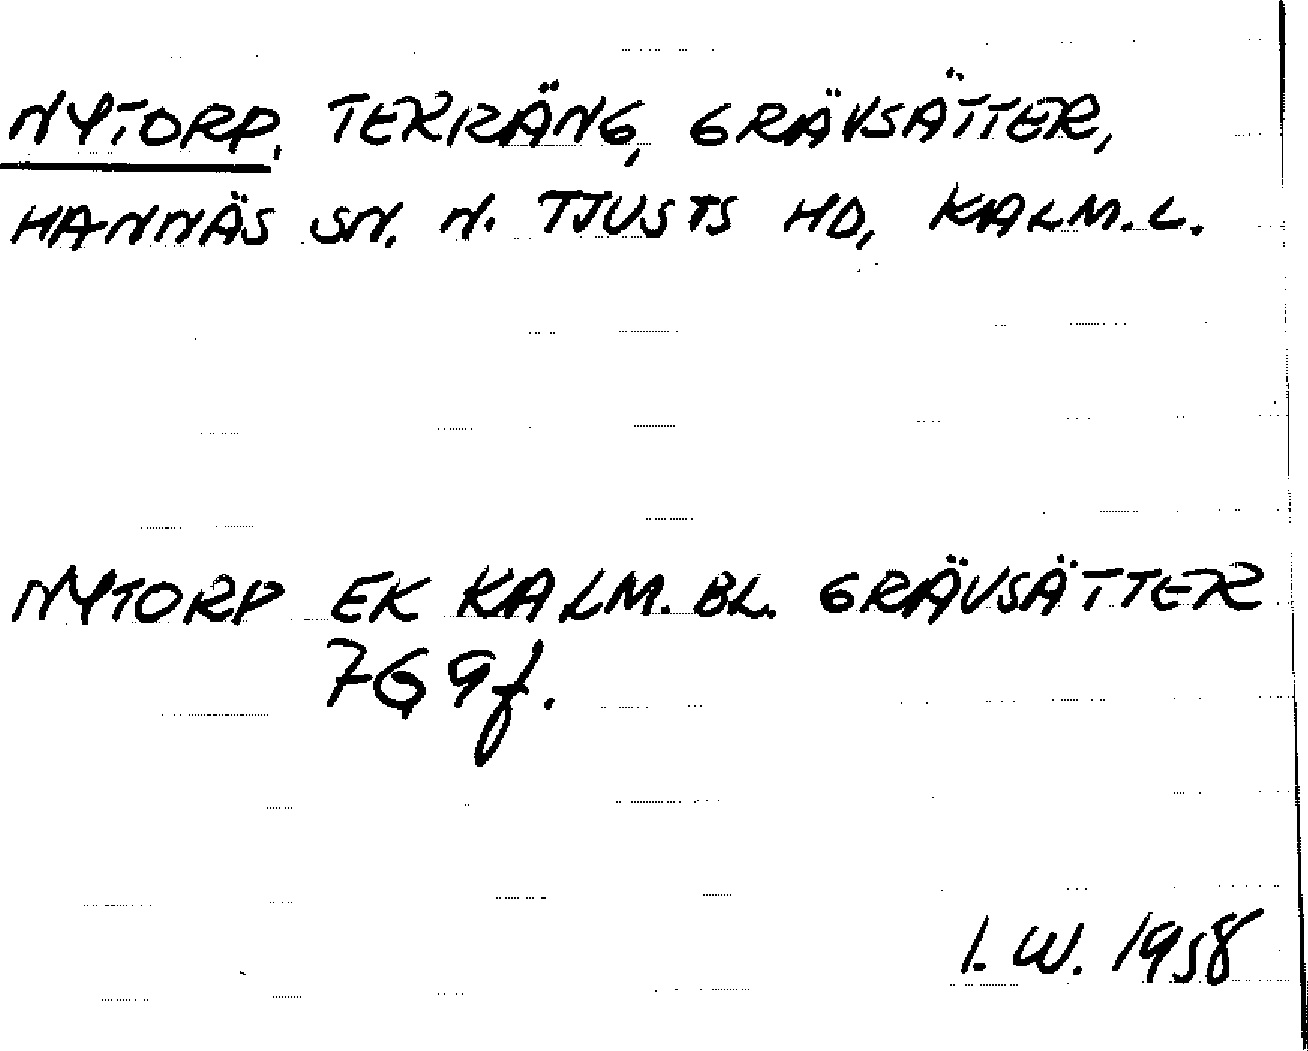 NYTORP, TERRÄNG, GRÄVSÄTTER,
HANNÄS SN. N. TJUSTS HD, KALM. L.
NYTORP EK KALM. BL. GRÄVSÄTTER
7G 9f.
I. W. 1958